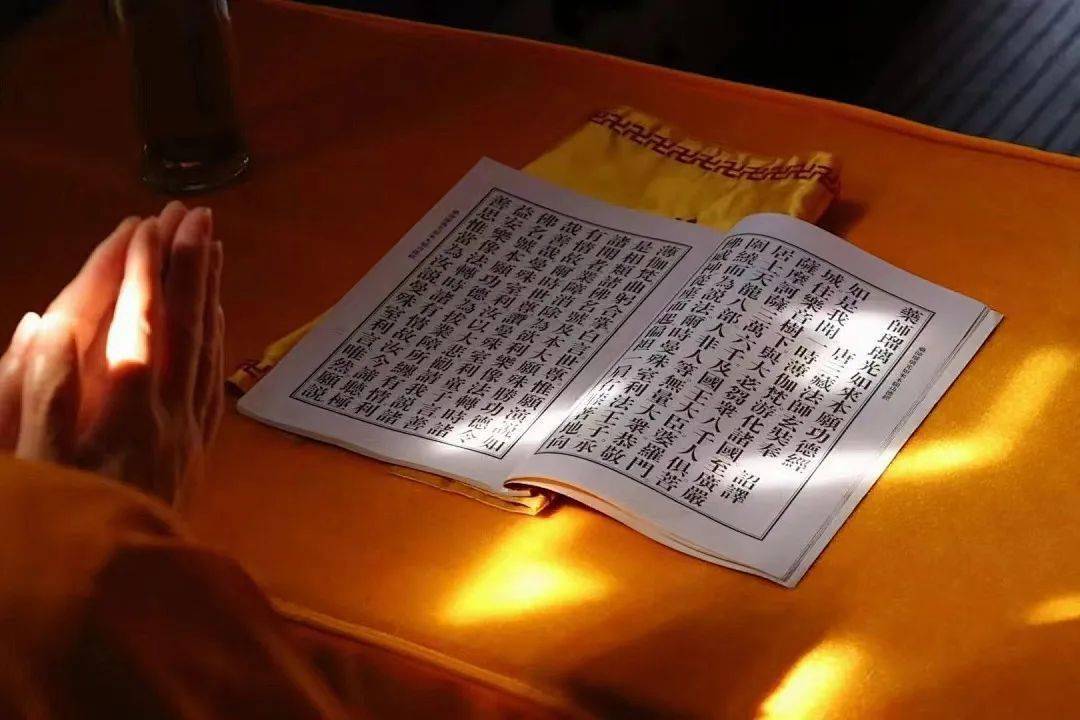 藥師瑠璃光如來本願功德經
唐三藏法師玄奘奉 詔譯
如是我聞一時薄伽梵游化諸國至廣嚴
城住樂音樹下與大苾芻衆八千人俱菩
薩摩訶薩三萬六千及國王大臣婆羅門
居士天龍八部人非人等無量大衆恭敬
圍繞而為說法爾時曼殊室利法王子承
佛威神從座而起偏袒一肩右膝著地向
薄伽梵曲躬合掌白言世尊惟願演說如
是相類諸佛名號及本大願殊勝功德令
諸聞者業障消除為欲利樂像法轉時諸
有情故爾時世尊讚曼殊室利童子言善
哉善哉曼殊室利汝以大悲勸請我說諸
佛名號本願功德為拔業障所纏有情利
益安樂像法轉時諸有情故汝今諦聽極
善思惟當為汝說曼殊室利言唯然願說